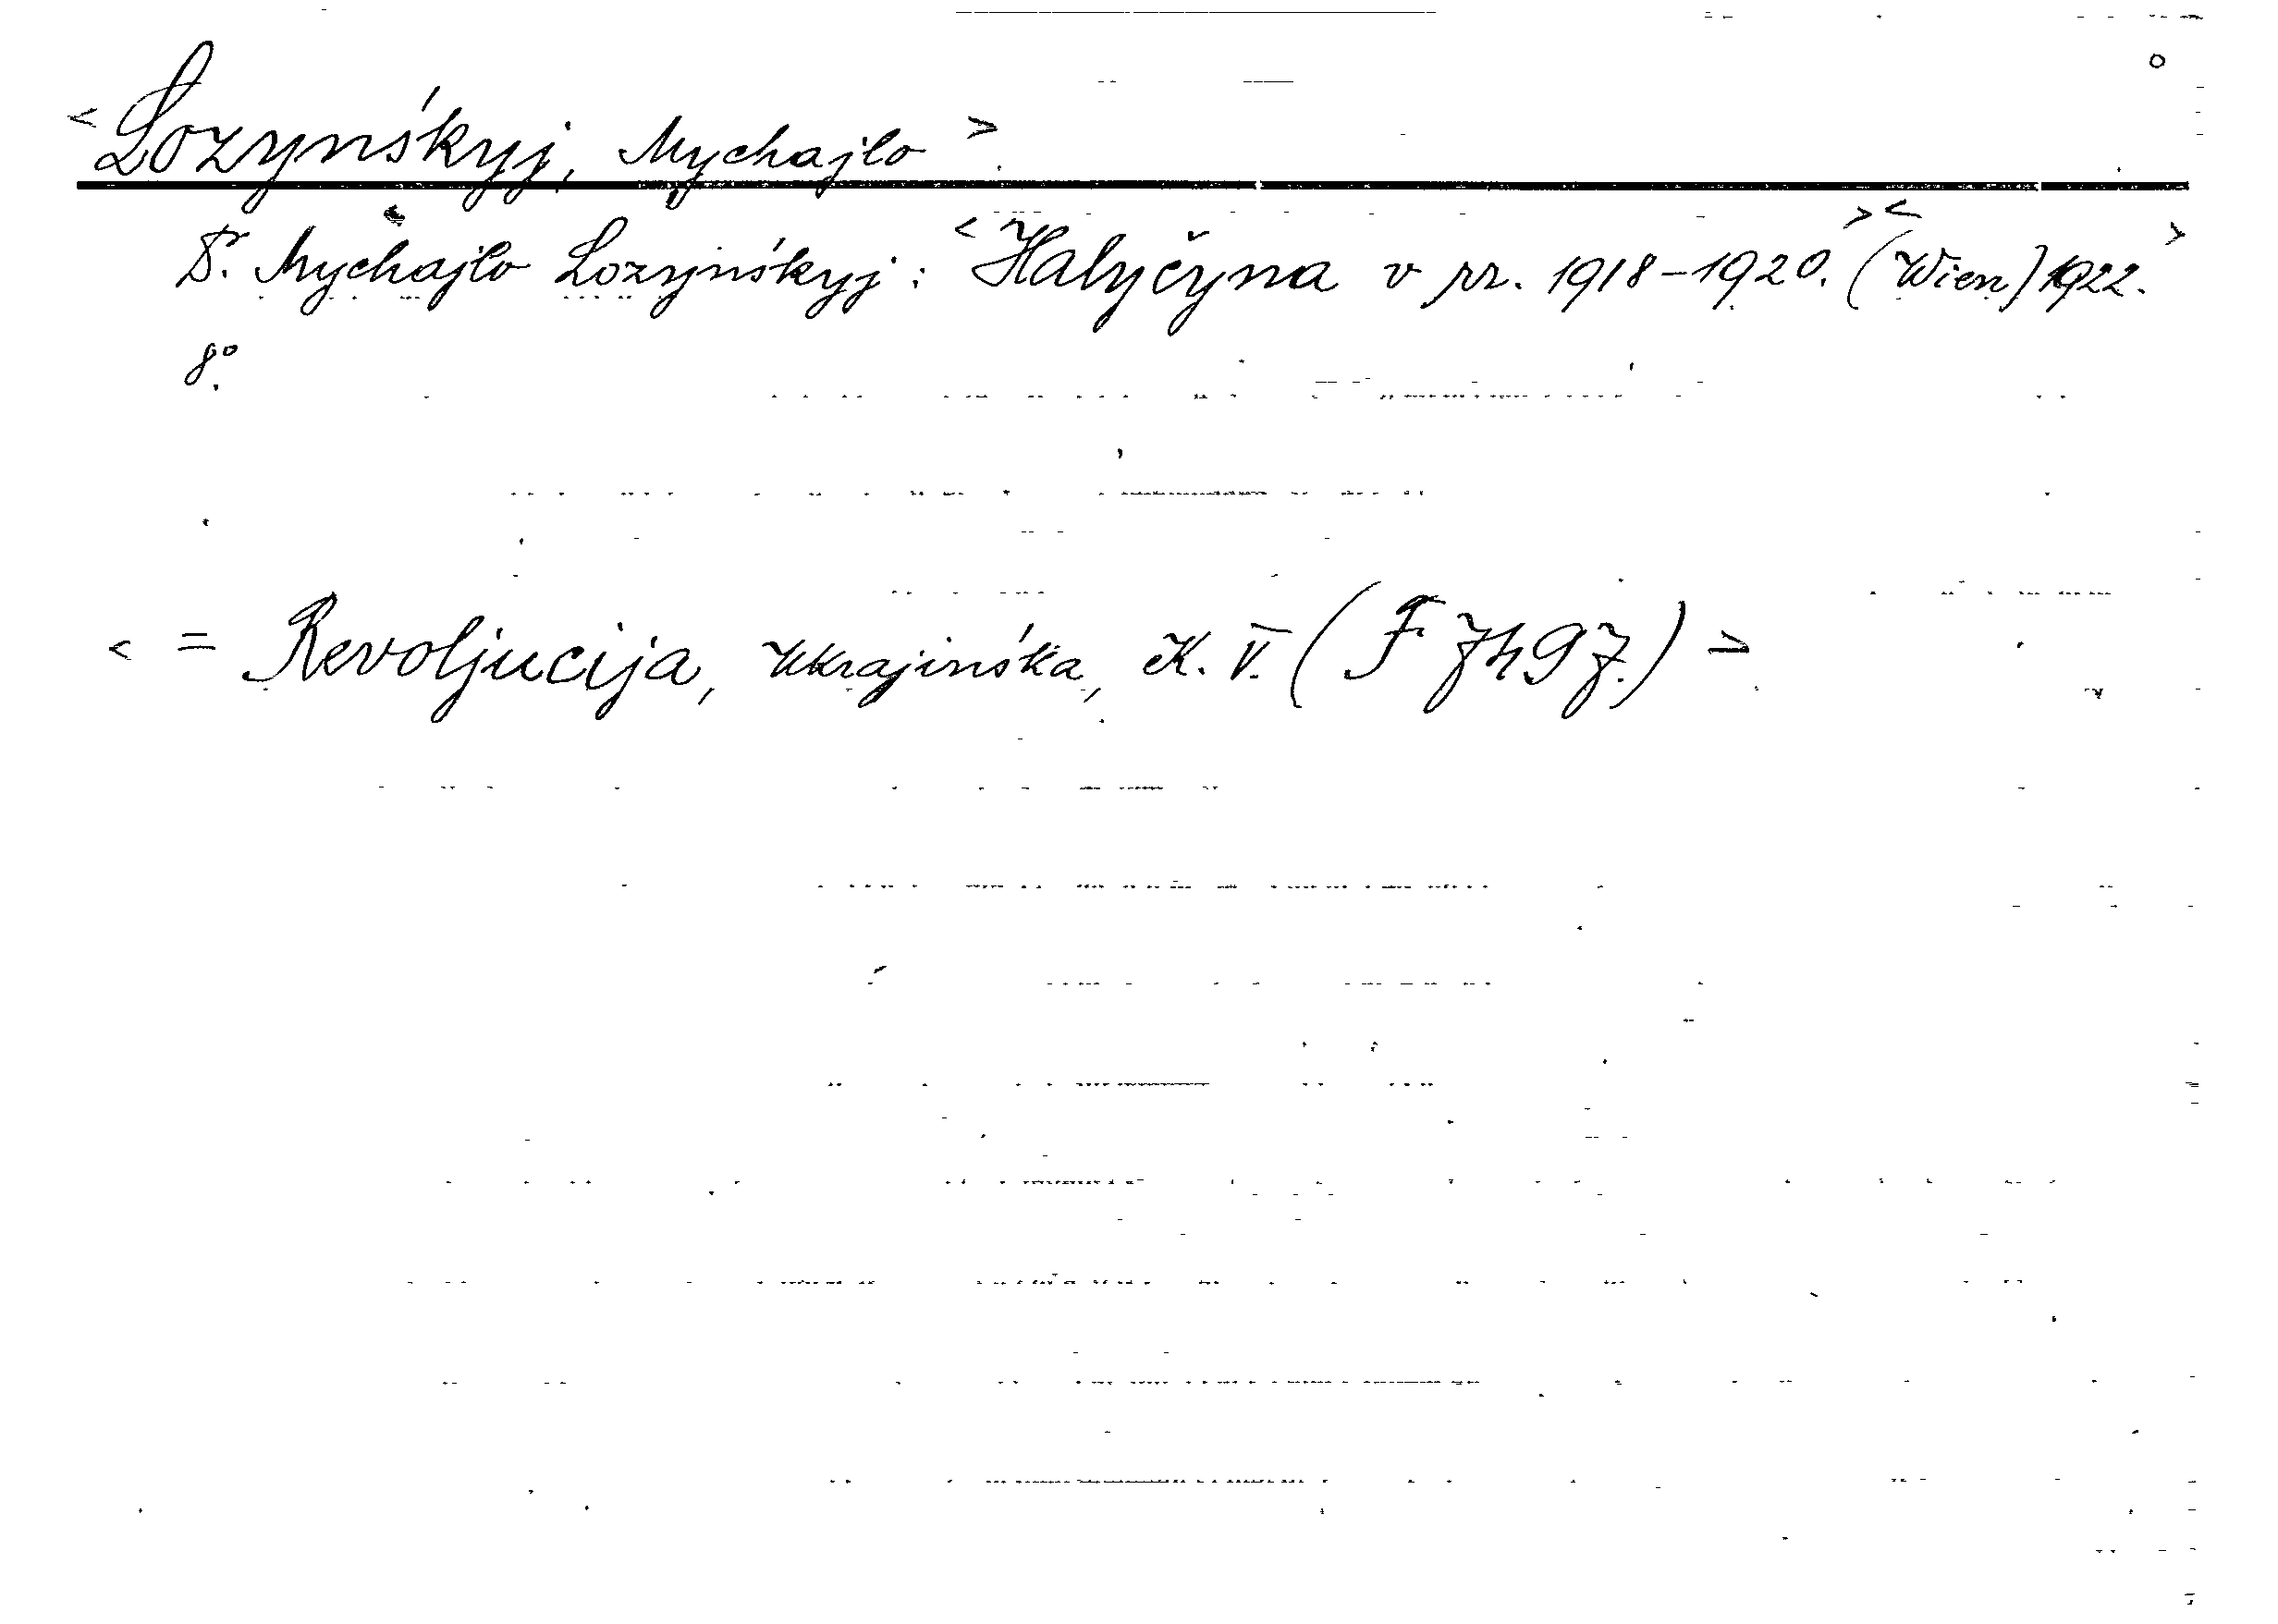 <Lozynśkyj, Mychajlo>
Dr. Mychajlo Lozynśkyj: <Halyčyna v rr. 1918-1920.><(Wien) 1922.>
8°.
< = Revoljucija, Ukrajinśka, K. V. (F 7497.) >